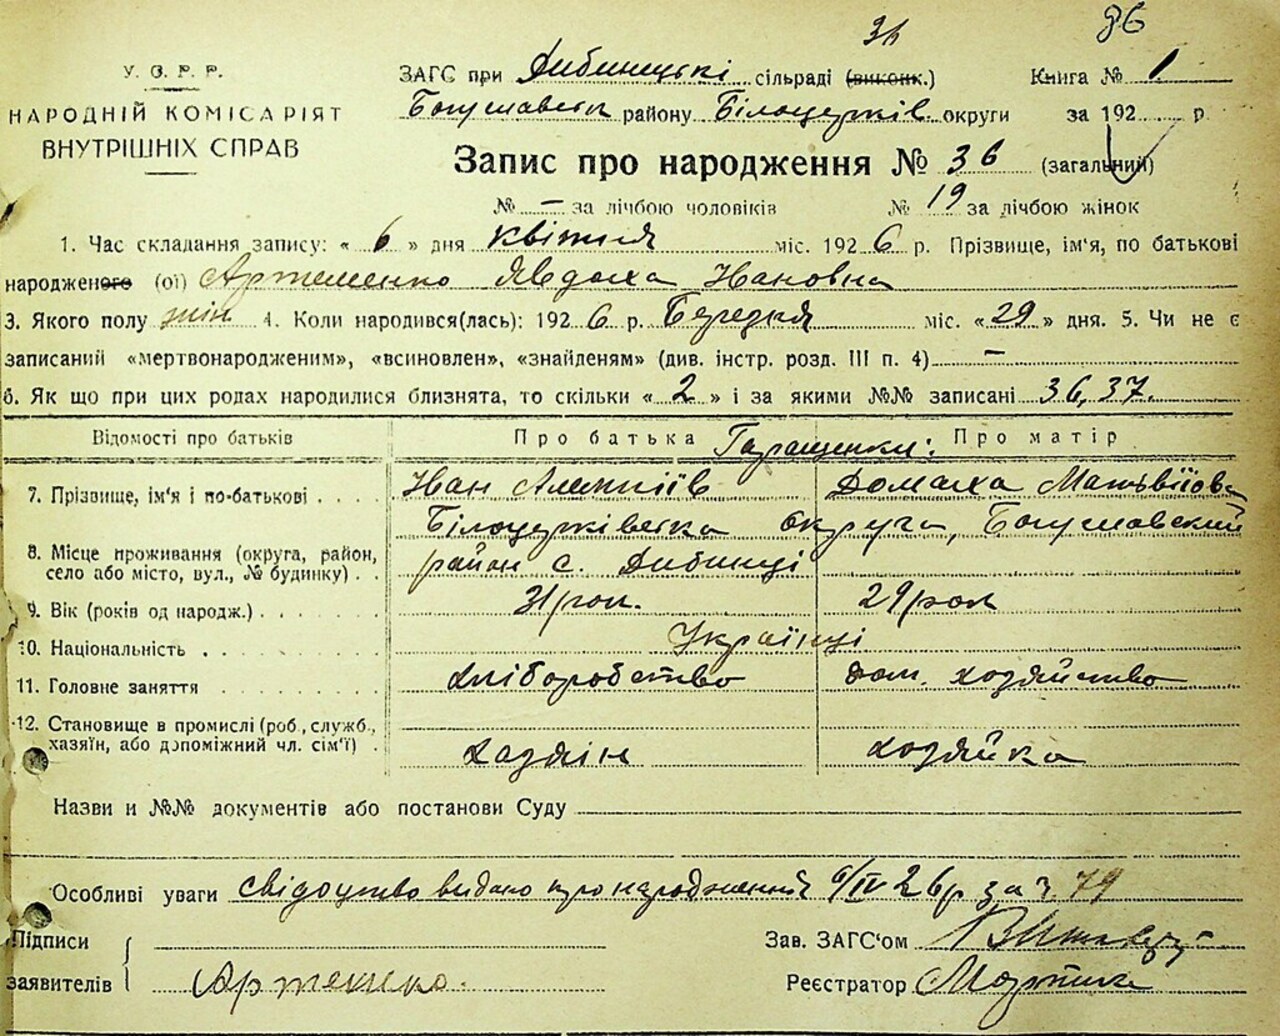 86
У. С. Р. Р.
НАРОДНІЙ КОМІСАРІЯТ
ВНУТРІШНІХ СПРАВ
ЗАГС при Дибинецькі сільраді (виконк.) Книга № 1
Богуславськ району Білоцерків. округи за 192 р.
Запис про народження № 36 (загальний)
№ — за лічбою чоловіків № 19 за лічбою жінок
1. Час складання запису: « 6 » дня квітня міс. 1926 р. Прізвище, ім'я, по батькові
народженого (ої) Артеменко Явдоха Ивановна
3. Якого полу жін 4. Коли народився(лась): 1926 р. Березня міс. «29» дня. 5. Чи не є
записаний «мертвонародженим», «всиновлен», «знайденям» (див. інстр. розд. III п. 4) —
6. Як що при цих родах народилися близнята, то скільки « 2 » і за якими №№ записані 36, 37.
Відомості про батьків Про батька Про матір
7. Прізвище, ім'я і по-батькові Иван Домаха Матвіїова
Білоцерківська округа, Богуславский
8. Місце проживання (округа, район,
село або місто, вул., № будинку) район с. Дибинці
9. Вік (років од народж.) 31 рок. 29 рок
10. Національність Українці
11. Головне заняття хліборобство дом. хозяйство
12. Становище в промислі (роб., служб.,
хазяїн, або допоміжний чл. сім'ї) хазяін хозяйка
Назви и №№ документів або постанови Суду
Особливі уваги свідоцтво видано про народження 6/IV 26р за ч. 79
Підписи
заявителів Артеменко.
Зав. ЗАГС'ом
Реєстратор